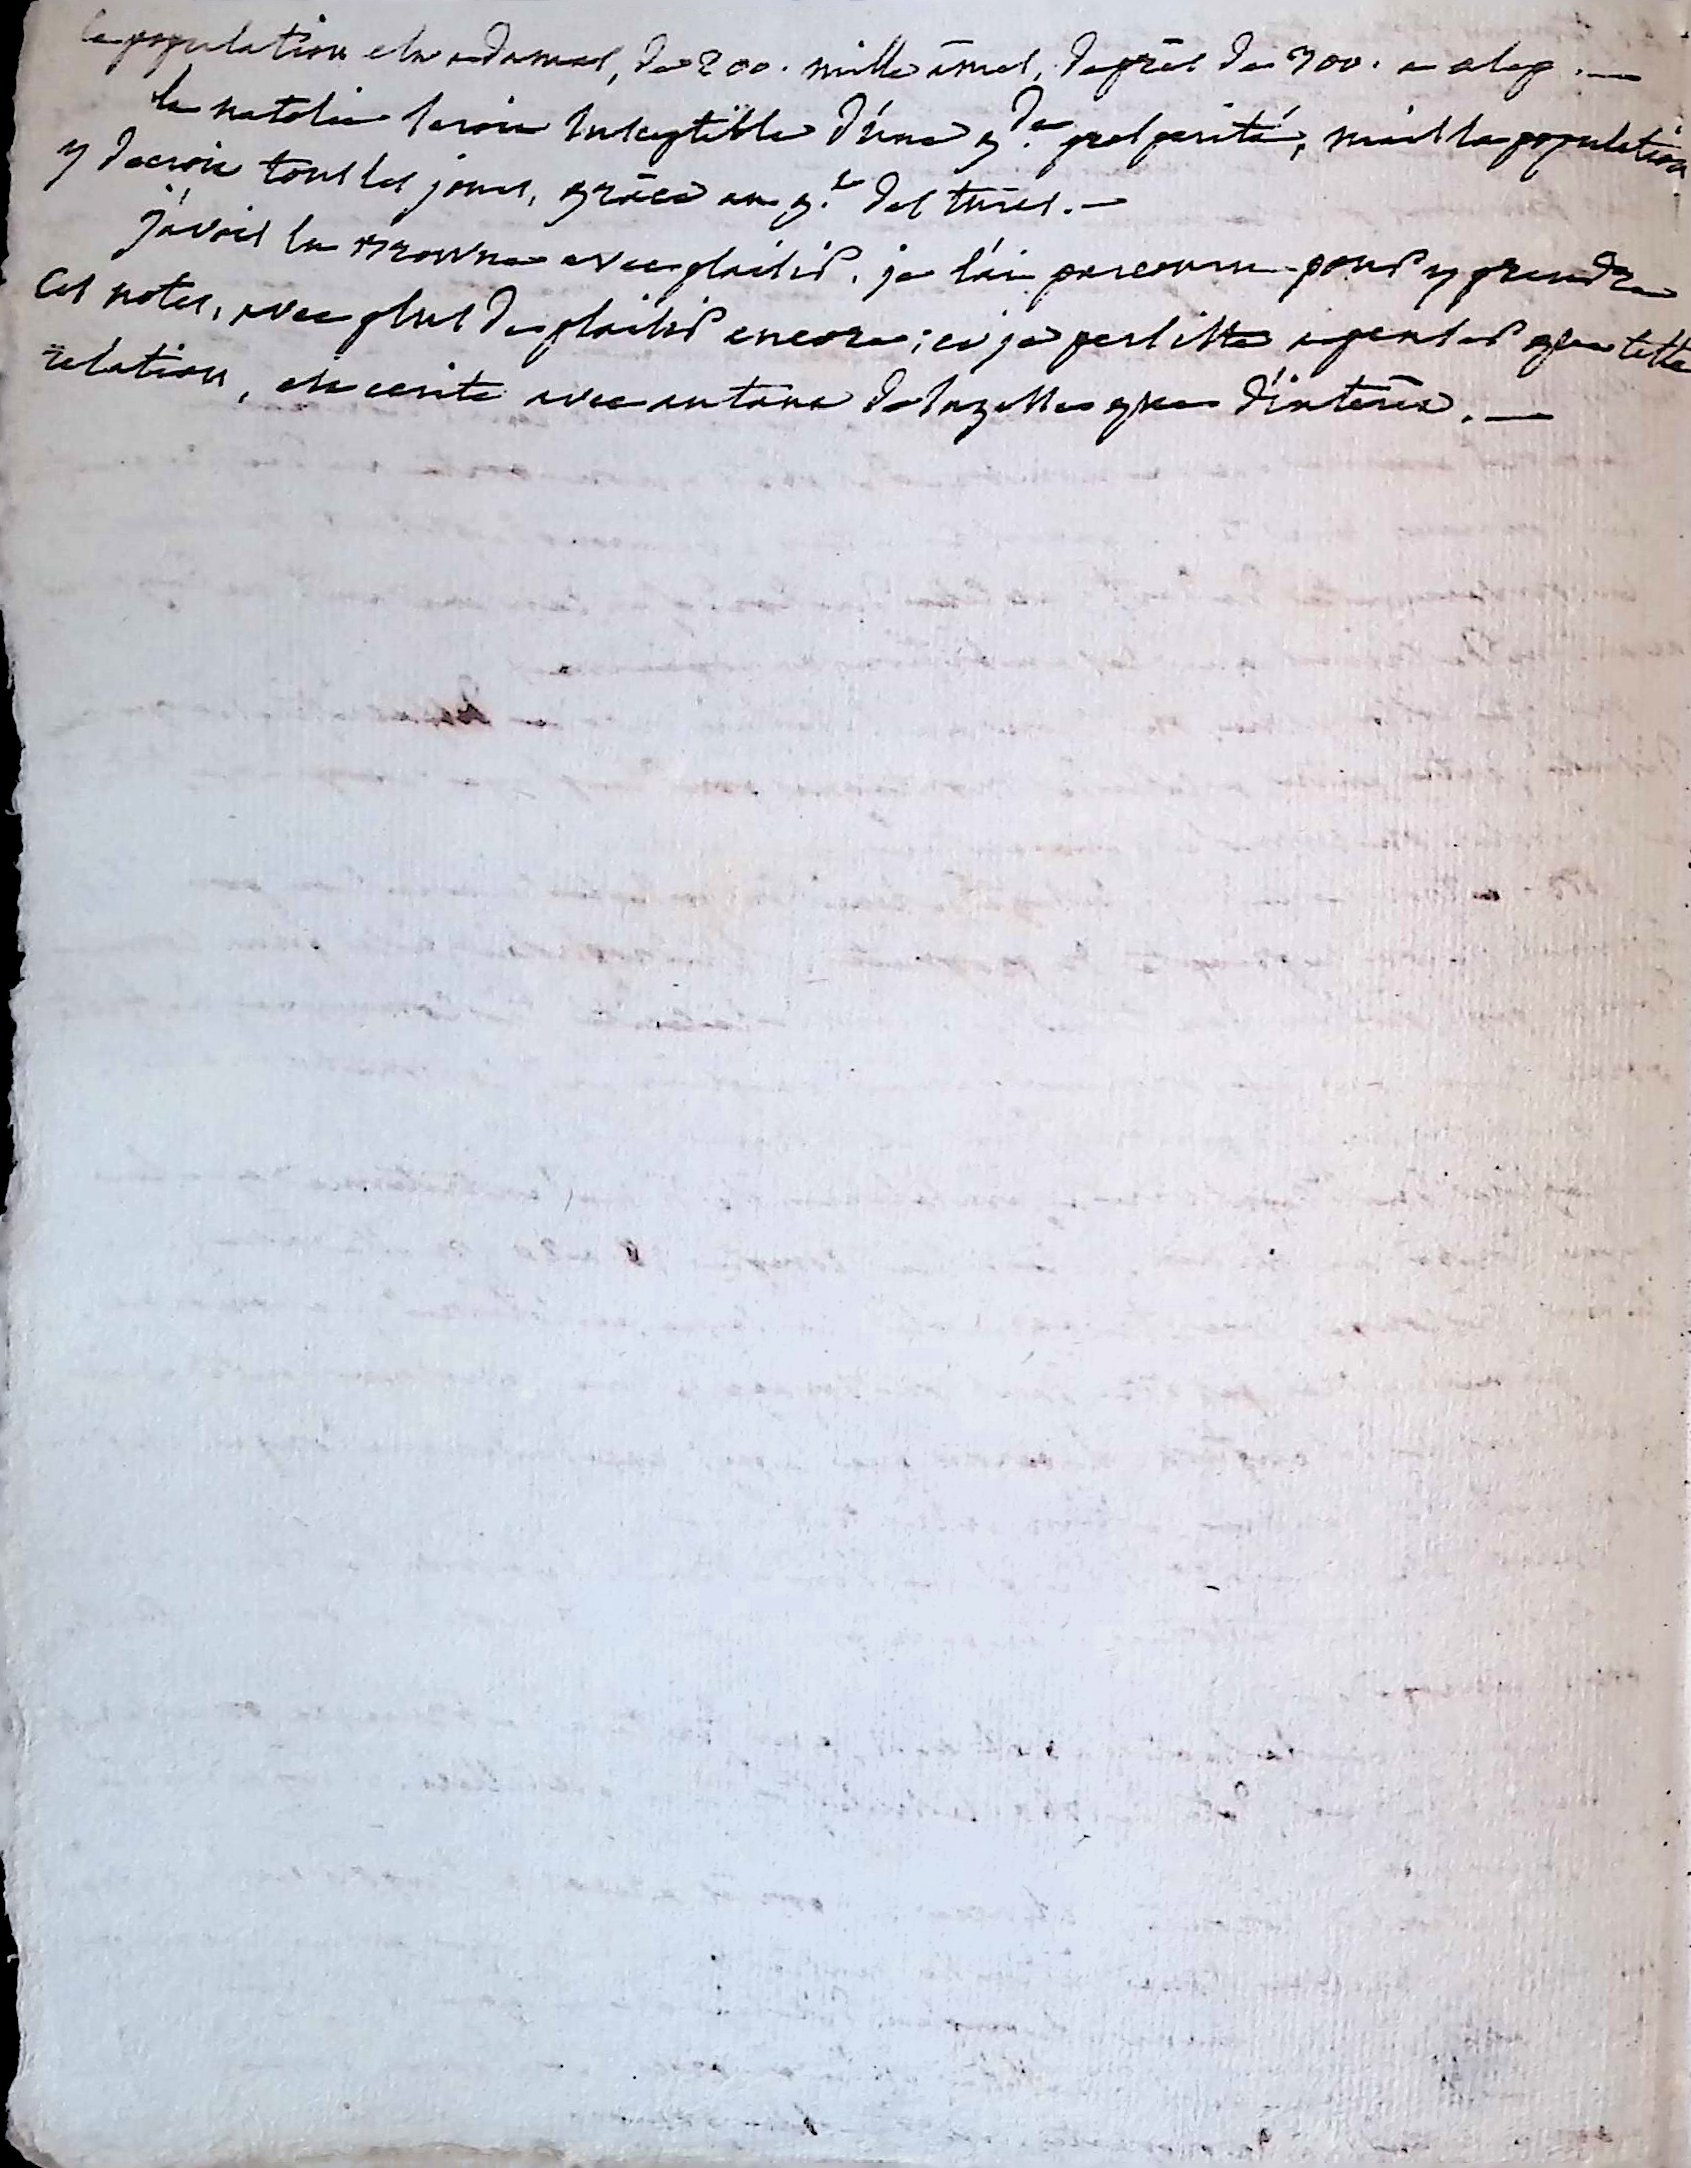 la population est a damas, de 200. mille âmes, de près de 300. a alep. —
la natolie seroit susceptible d'une g.de prosperité, mais la population
y decroit tous les jours, grâce au g.t des turcs. —
j'avois lu Browne avec plaisir. je l'ai parcouru pour y prendre
ces notes, avec plus de plaisir encore ; et je persiste a penser que cette
relation, est ecrite avec autant de sagesse que d'intérêt. —